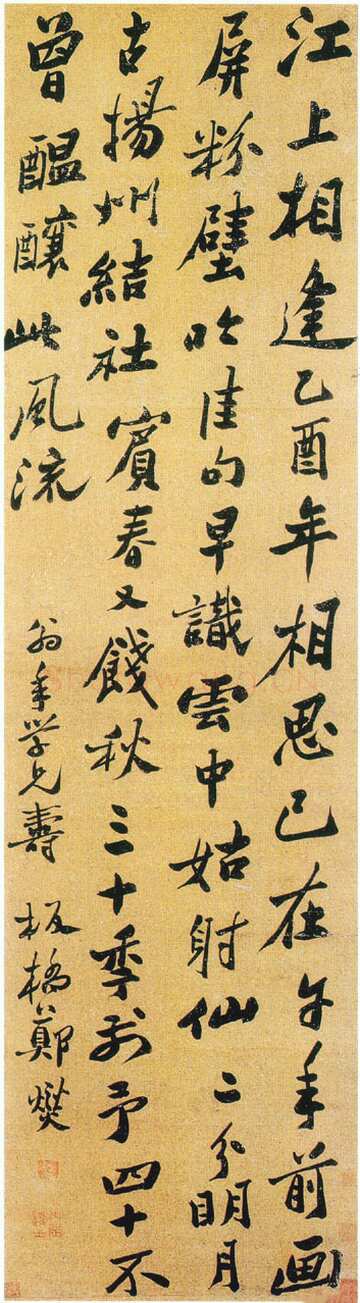 江上相逢乙酉年相思已在午年前画
屏粉壁吟佳句早識雲中姑射仙二分明月
古揚州結社賓春又餞秋三十季前予四十不
曾醞釀此風流
翁年学兄壽 板橋鄭燮